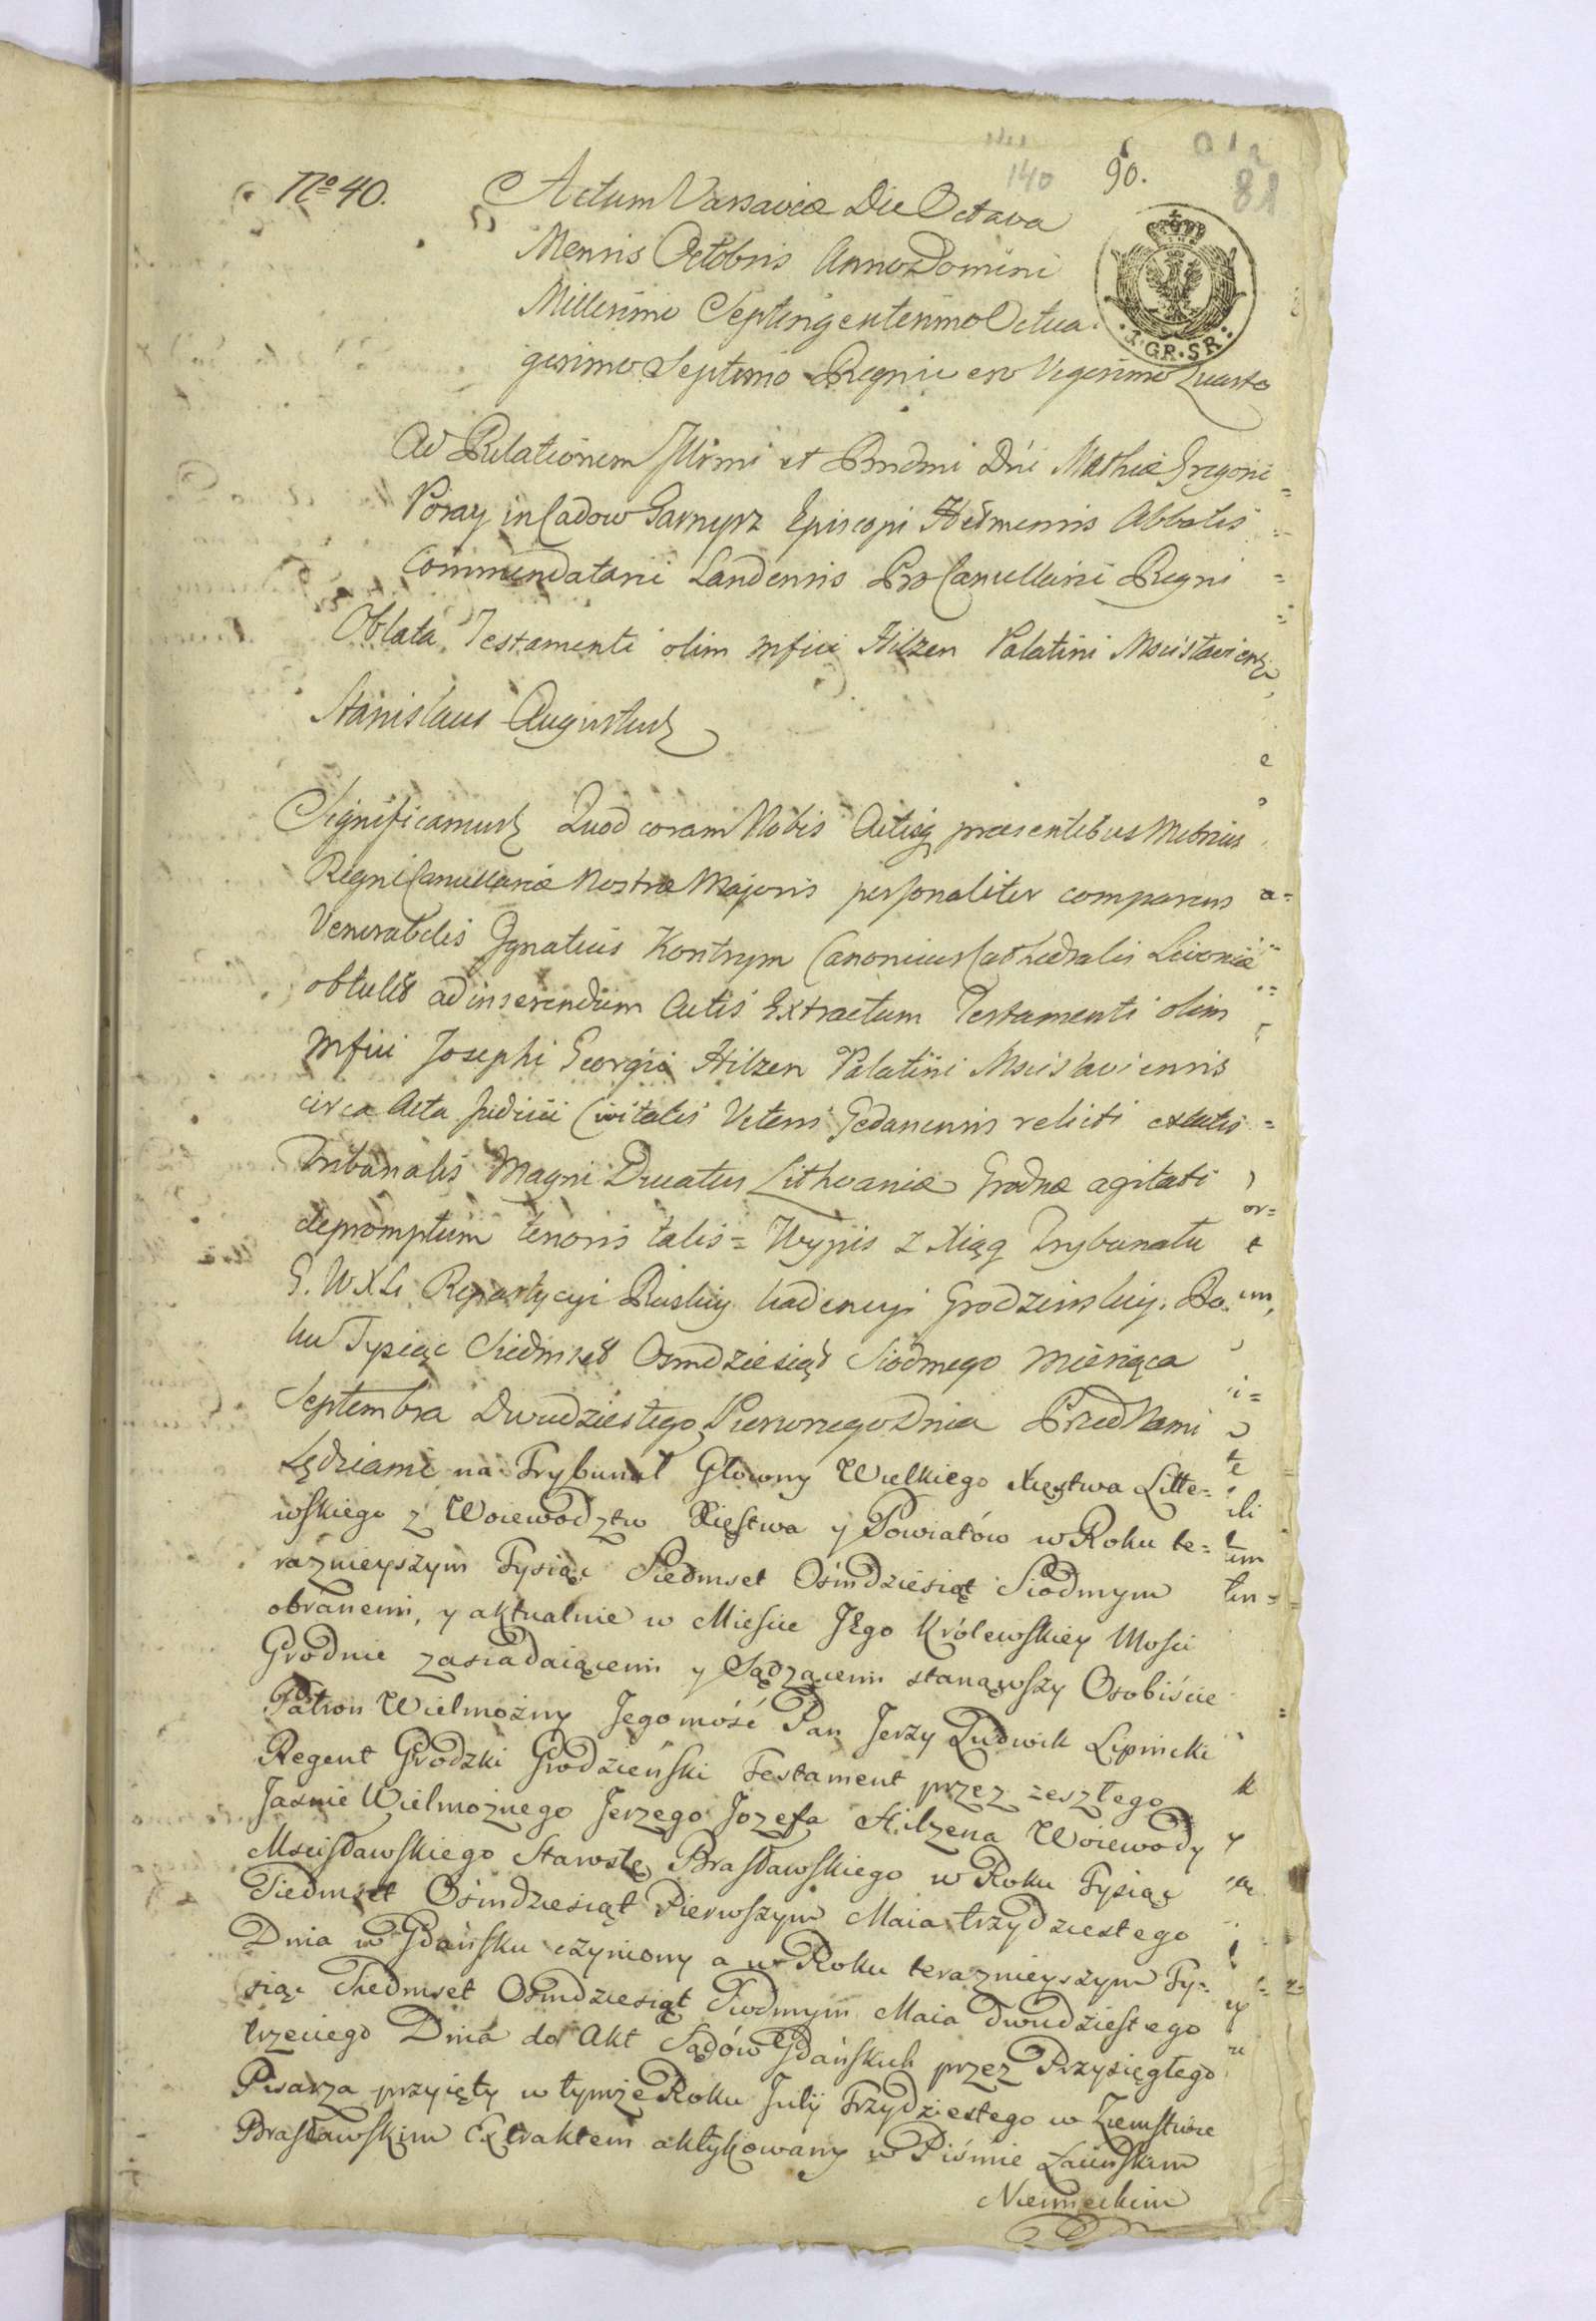 90.
140
81
Nº 40.
Actum Varsaviæ Die Octava
Mensis Octobris Anno Domini
Millesimo Septingentesimo Octua-
gesimo Septimo Regni vero Vigesimo Quarto
1. GR. SR.
Ad Relationem Illrmi et Rndmi Dni Mathiæ Gregorii
Poray in Cadow Garnysz Episcopi Chełmensis Abbatis
Commendatarii Landensis Pro Cancellarii Regni
Oblata Testamenti olim Mfici Hilzen Palatini Mscislaviensis
Stanislaus Augustus
Significamus Quod coram Nobis Actisq præsentibus Metrices
Regni Cancellariæ Nostræ Majoris personaliter comparens
Venerabilis Ignatius Kontrym Canonicus Cathedralis Livoniæ
obtulit ad inserendum Actis Extractum Testamenti olim
Mfici Josephi Georgii Hilzen Palatini Mscislaviensis
circa Acta Judicii Civitatis Veteris Gedanensis relicti ex Actis
Tribunalis Magni Ducatus Lithvaniæ Grodnæ agitati
depromptum tenoris talis = Wypis z Xiąg Trybunału
G. W. X. Li Repartycyi Ruskiey kadencyi Grodzinskiey. Ro-
ku Tysiąc Siedmset Osmdziesiąt Siodmego Miesiąca
Septembra Dwudziestego Pierwszego Dnia Przed Nami
Sędziami na Trybunał Głowny Wielkiego Xięstwa Litte-
wskiego z Woiewodztw Xięstwa y Powiatów w Roku te-
raznieyszym Tysiąc Siedmset Ośmdziesiąt Siodmym
obranemi, y aktualnie w Mieście Jego Królewskiey Mości
Grodnie zasiadaiącemi y Sądzącemi stanąwszy Osobiście
Patron Wielmożny Jegomość Pan Jerzy Ludwik Lipnicki
Regent Grodzki Grodzieński Testament przez zeszłego
Jasnie Wielmożnego Jerzego Jozefa Hilzena Woiewody
Mscisławskiego Starostę Brasławskiego w Roku Tysiąc
Siedmset Ośmdziesiąt Pierwszym Maia trzydziestego
Dnia w Gdańsku czyniony a w Roku teraznieyszym Ty-
siąc Siedmset Osmdziesiąt Siodmym Maia dwudziestego
trzeciego Dnia do Akt Sądów Gdańskich przez Przysięgłego
Pisarza przyięty w tymże Roku Julij Trzydziestego w Ziemstwie
Brasławskim Extraktem aktykowany w Piśmie Łacińskim
Niemieckim